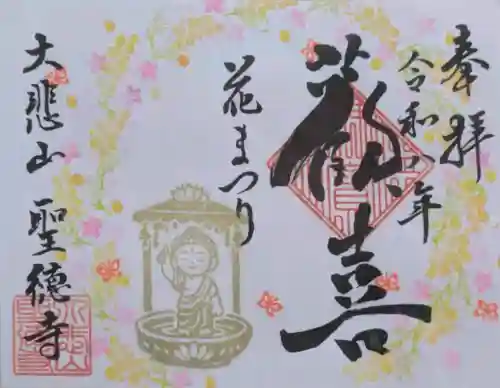 奉拝
令和八年
歓喜
花まつり
大悲山 聖徳寺